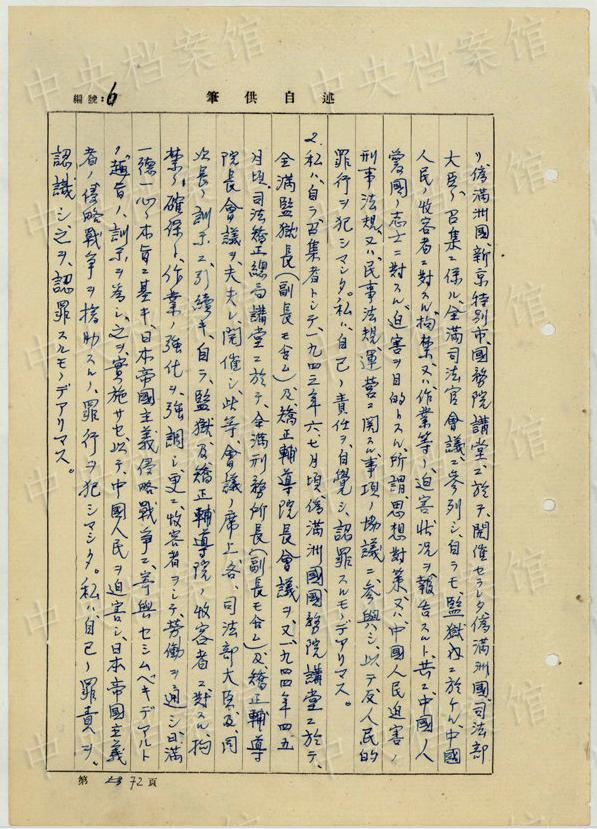 述自供筆
編號:6
リ偽満洲國、新京特別市、國務院講堂ニ於テ、開催セラレタ偽満洲國、司法部
大臣ノ召集ニ係ル、全満司法官會議ニ参列シ、自ラモ、監獄内ニ於ケル、中國
人民ノ收容者ニ対スル拘禁又ハ作業等ノ迫害状況ヲ報告スルト、共ニ中國人
愛國ノ志士ニ對スル、迫害ヲ目的トスル、所謂、思想対策、又ハ中國人民迫害ノ
刑事法規又ハ民事法規ノ運営ニ関スル事項ノ協議ニ参與シ、以テ反人民的
罪行ヲ犯シマシタ。私ハ自己ノ責任ヲ自覚シ、認罪スルモノデアリマス。
2.私ハ、自ラ召集者トシテ、一九四三年六、七月頃、偽満洲國國務院講堂ニ於テ、
全満監獄長(副長モ含ム)及矯正輔導院長會議ヲ又一九四四年四五
月頃司法矯正總局講堂ニ於テ、全満刑務所長(副長モ含ム)及、矯正輔導
院長會議ヲ夫夫レ開催シ、此等ノ會議ノ席上、各、司法部大臣及、同
次長ノ訓示ニ引續キ自ラ、監獄及矯正輔導院ノ收容者ニ対スル、拘
禁ノ確保ト、作業ノ強化ヲ強調シ、更ニ收容者ヲシテ、労働ヲ通シ日満
一德一心ノ本旨ニ基キ、日本帝國主義侵略戦争ニ寄與セシムベキデアルト
ノ趣旨ノ訓示ヲ為シ、之ヲ實施サセ、以テ、中國人民ヲ迫害シ、日本帝國主義
者ノ侵略戦争ヲ援助スルノ罪行ヲ犯シマシタ。私ハ、自己ノ罪責ヲ、
認識シ、之ヲ、認罪スルモノデアリマス。
第 72 頁
中央档案馆